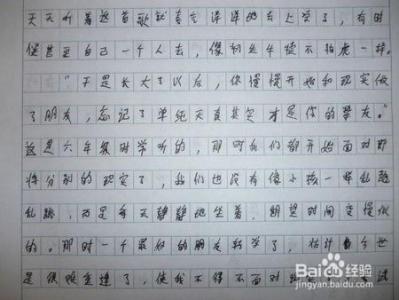 天天听着这首歌就喜气洋洋地去上学了，有时
便甚至自己一个人去，像初生牛犊不怕虎一样。
"于是长大了以后，你慢慢开始和现实做
了朋友，忘记了单纯天真其实才是你的学友。"
这是六年级时学听的，那时我们都开始面对即
将分别的现实了，我们也没有像小孩一样乱跑
乱跳，而是每天静静地坐着，期望时间变慢似
的。那时一个最好的朋友转学了，估计今世
是很难重逢了，使我不得不面对
Baidu百度经验
jingyan.baidu.com